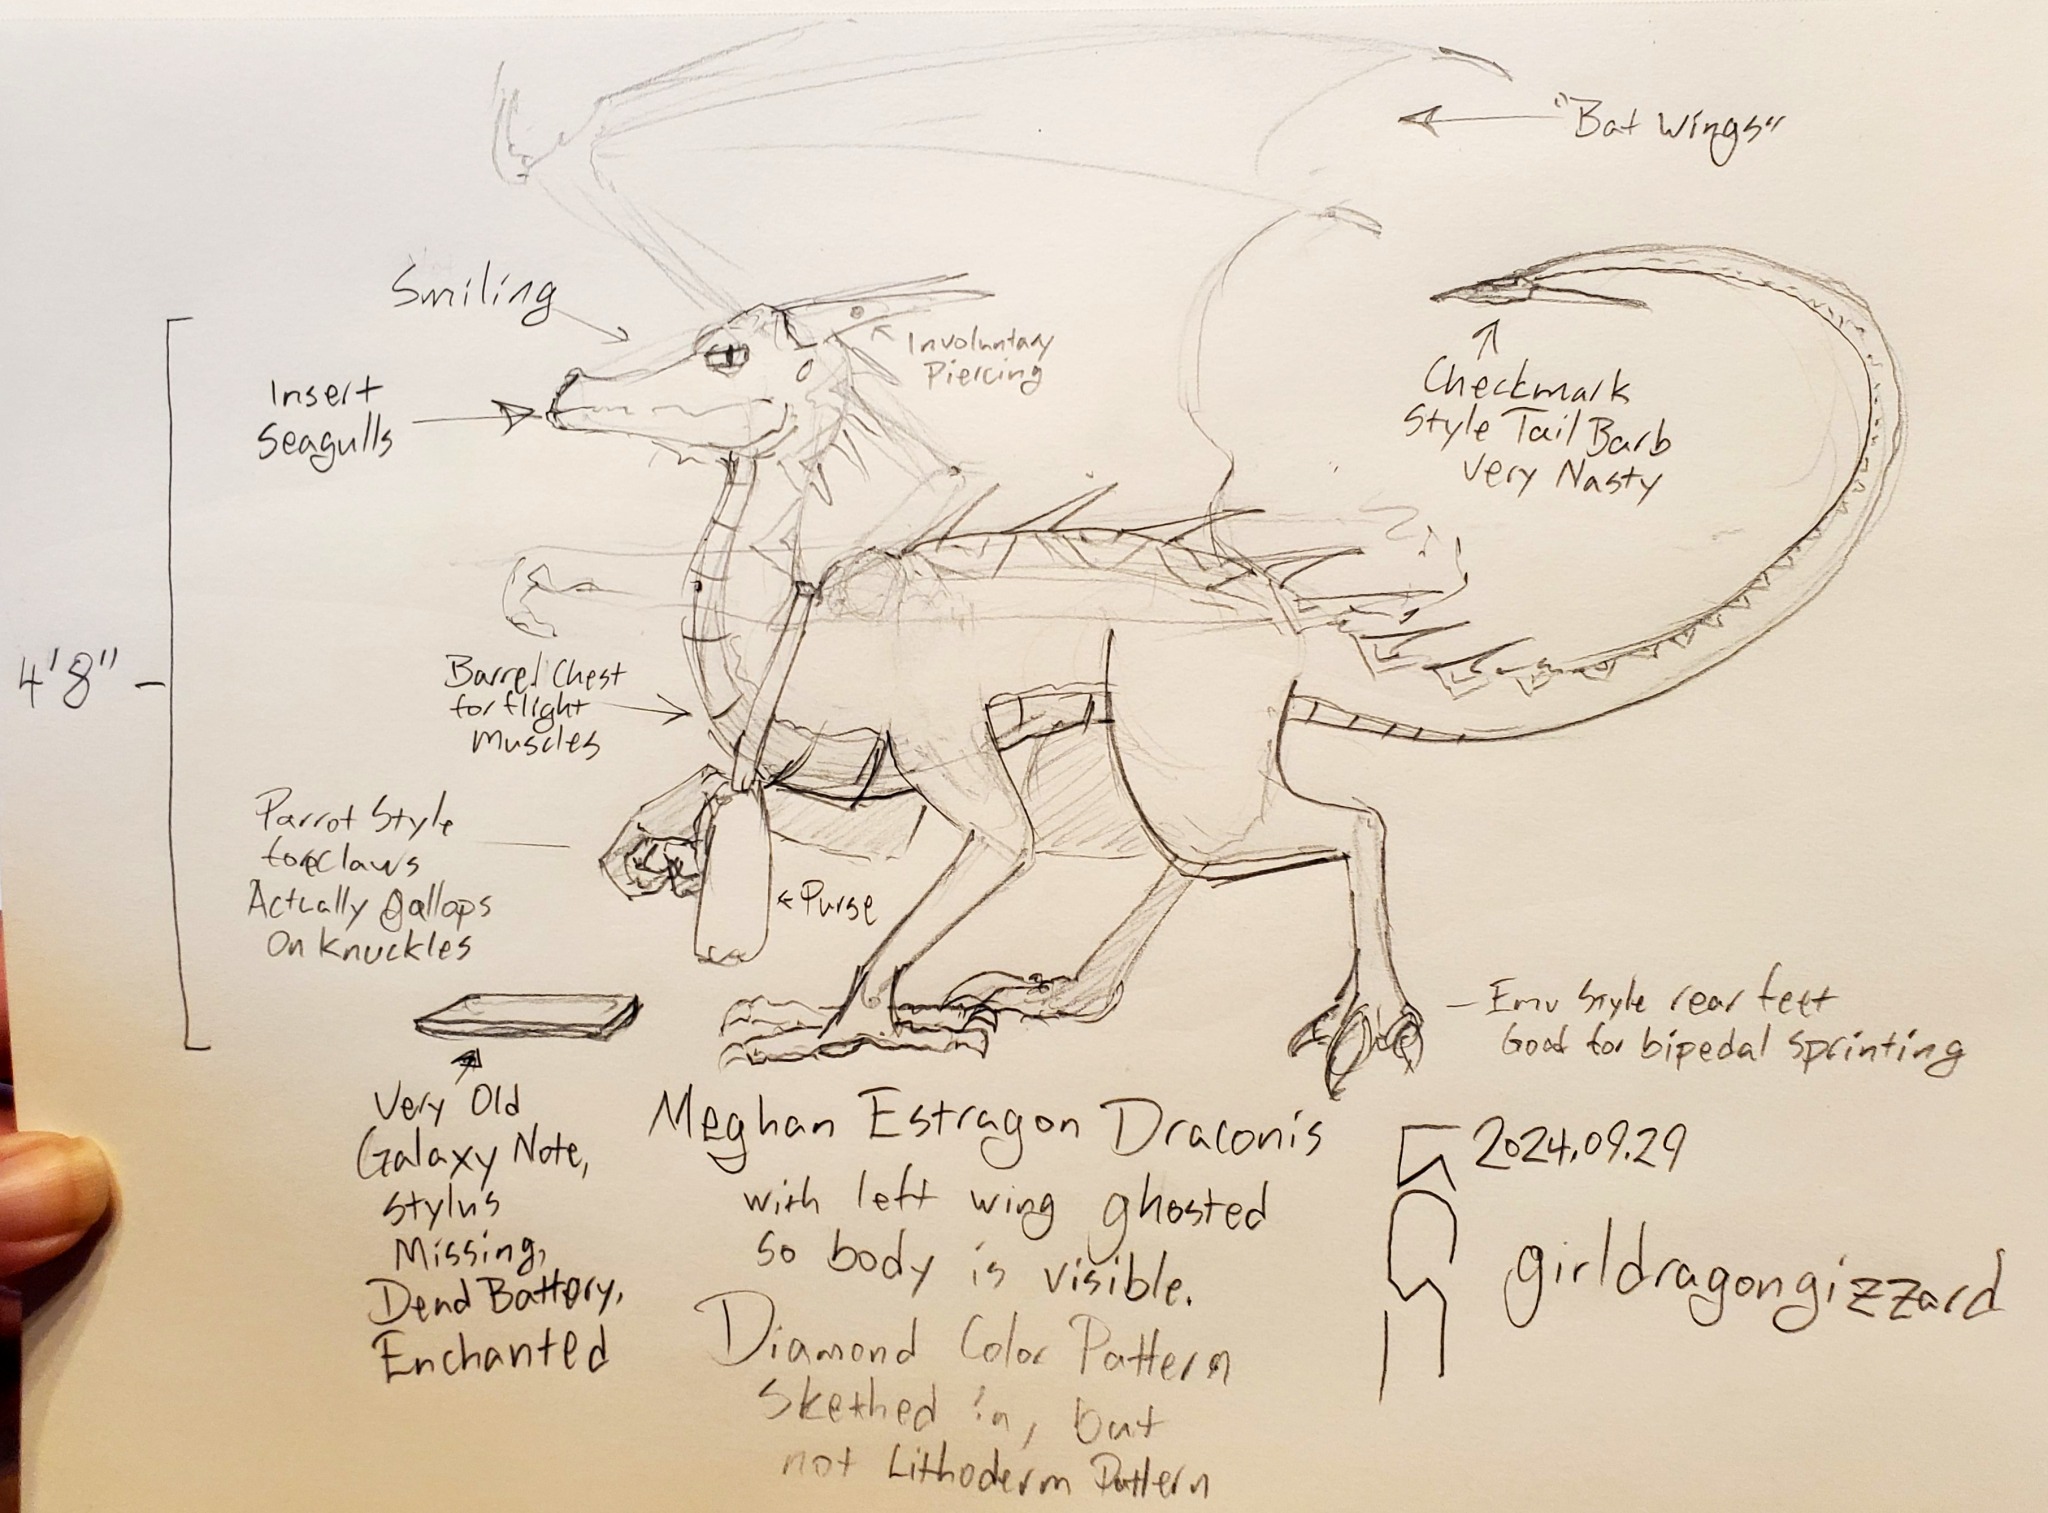 "Bat Wings"
Smiling
Involuntary
Piercing
Insert
Seagulls
Checkmark
Style Tail Barb
Very Nasty
4'8"
Barrel Chest
for flight
muscles
Parrot Style
foreclaws
Actually gallops
On knuckles
Purse
Emu Style rear feet
Good for bipedal sprinting
Very Old
Galaxy Note,
Stylus
Missing,
Dend Battery,
Enchanted
Meghan Estragon Draconis
with left wing ghosted
so body is visible.
Diamond Color Pattern
Skethed in, but
not Lithoderm Pattern
2024.09.29
girldragongizzard